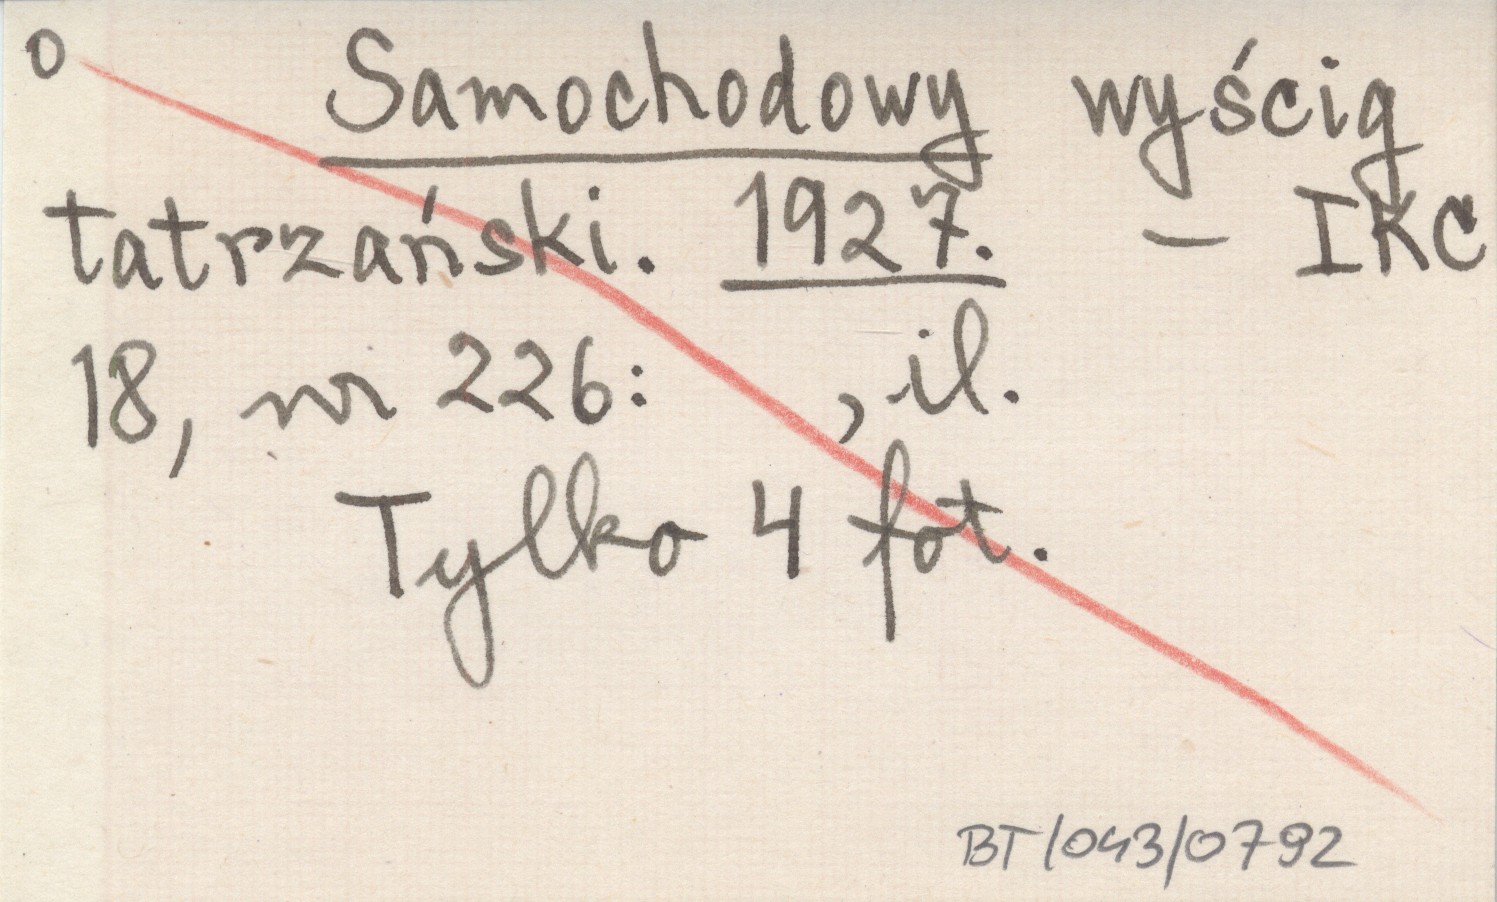 o Samochodowy wyścig
tatrzański. 1927. – IKC
18, nr 226: , il.
Tylko 4 fot.
BT/043/0792